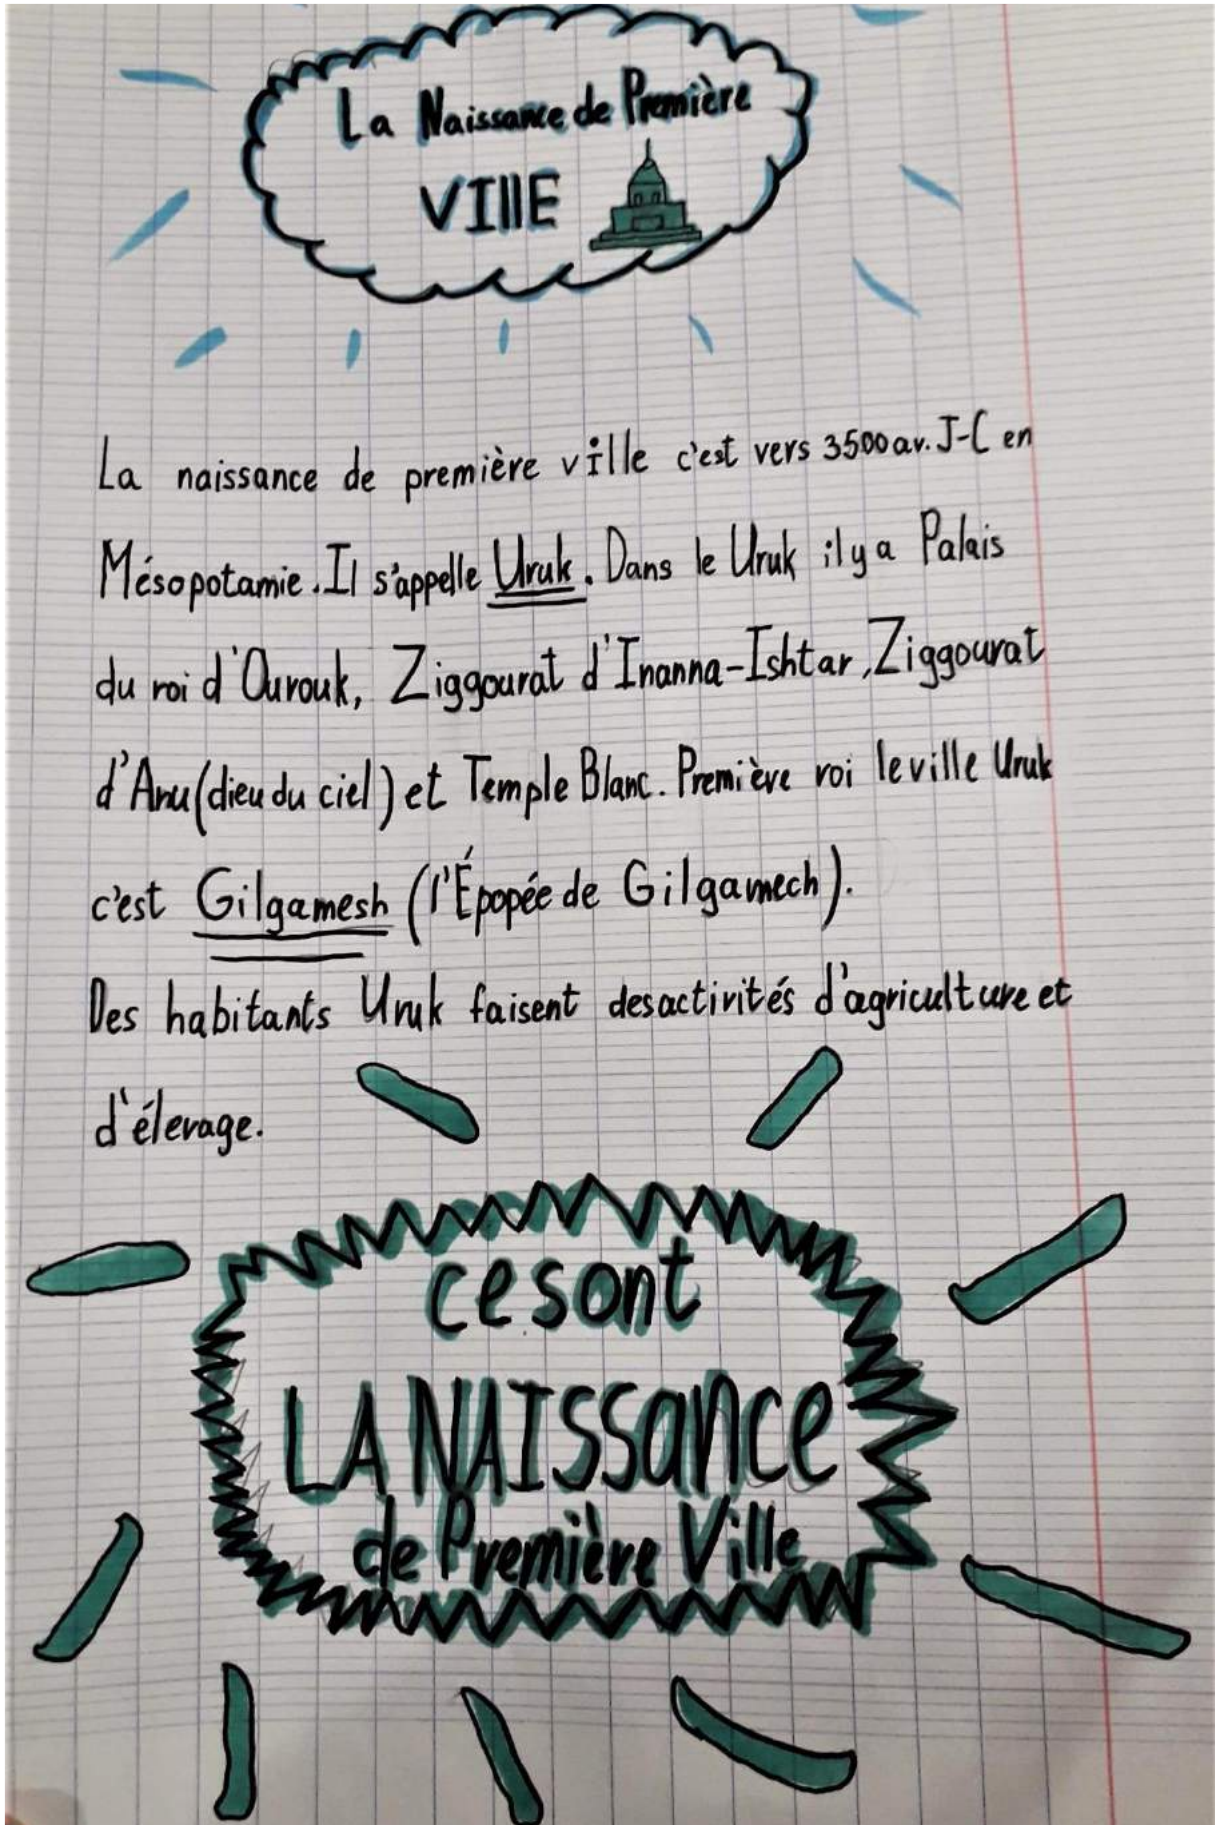 La Naissance de Première
VIllE
La naissance de première ville c'est vers 3500 av. J-C en
Mésopotamie. Il s'appelle Uruk. Dans le Uruk il y a Palais
du roi d'Ourouk, Ziggourat d'Inanna-Ishtar, Ziggourat
d'Anu (dieu du ciel) et Temple Blanc. Première roi le ville Uruk
c'est Gilgamesh (l'Épopée de Gilgamech).
Des habitants Uruk faisent des activités d'agriculture et
d'élevage.
ce sont
LA NAISSance
de Première Ville